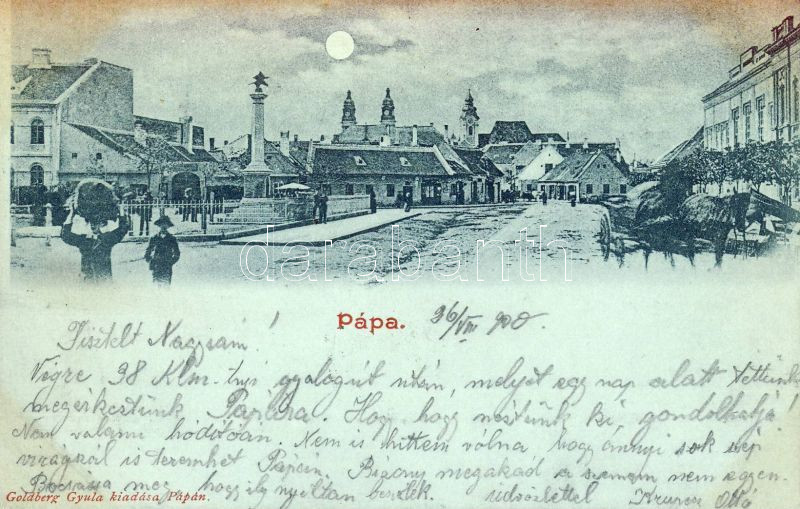 darabanth
Pápa. 26/VIII 900.
Tisztelt Nagysám!
Végre 38 Klm.-nyi gyalogút után, melyet egy nap alatt tettünk
megérkeztünk Pápára. Hogy hogy nestünk ki, gondolhatja!
Nem valami hódítóan. Nem is hittem volna, hogy annyi sok szép
virágszál is teremhet Pápán. Bizony megakad a szemem nem egyen.
Bocsássa meg, hogy ily nyíltan beszélek. üdvözlettel Ottó
Goldberg Gyula kiadása Pápán.